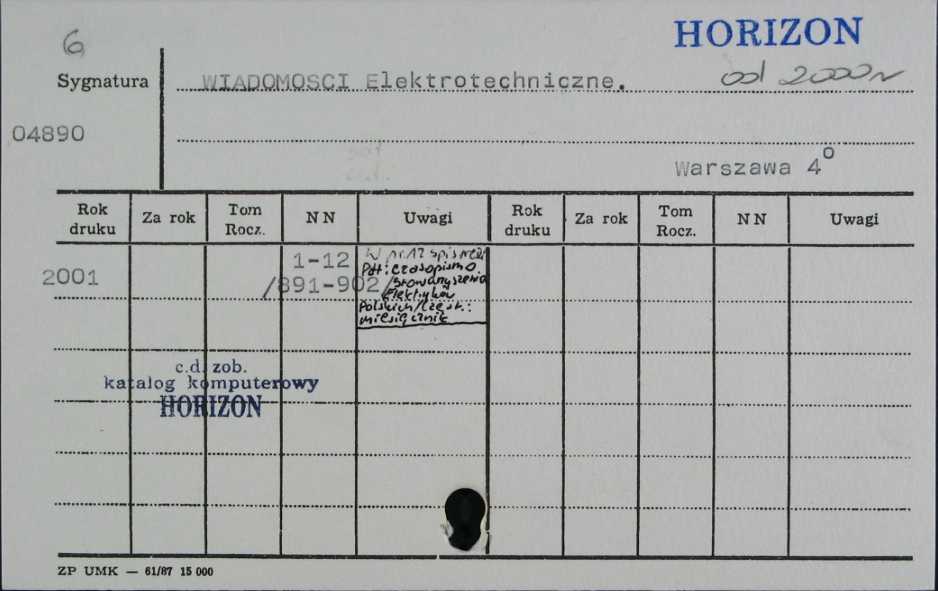 HORIZON
6
od 2000 r
Sygnatura
WIADOMOSCI Elektrotechniczne.
04890
Warszawa 4°
Rok druku Za rok Tom Rocz. NN Uwagi Rok druku Za rok Tom Rocz. NN Uwagi
2001 1-12
/891-902/
W nr 12 spis treści
Pdt: czasopismo
Stowarzyszenia
Elektryków
Polskich/Częst.:
miesięcznik
c.d. zob.
katalog komputerowy
HORIZON
ZP UMK — 61/87 15 000